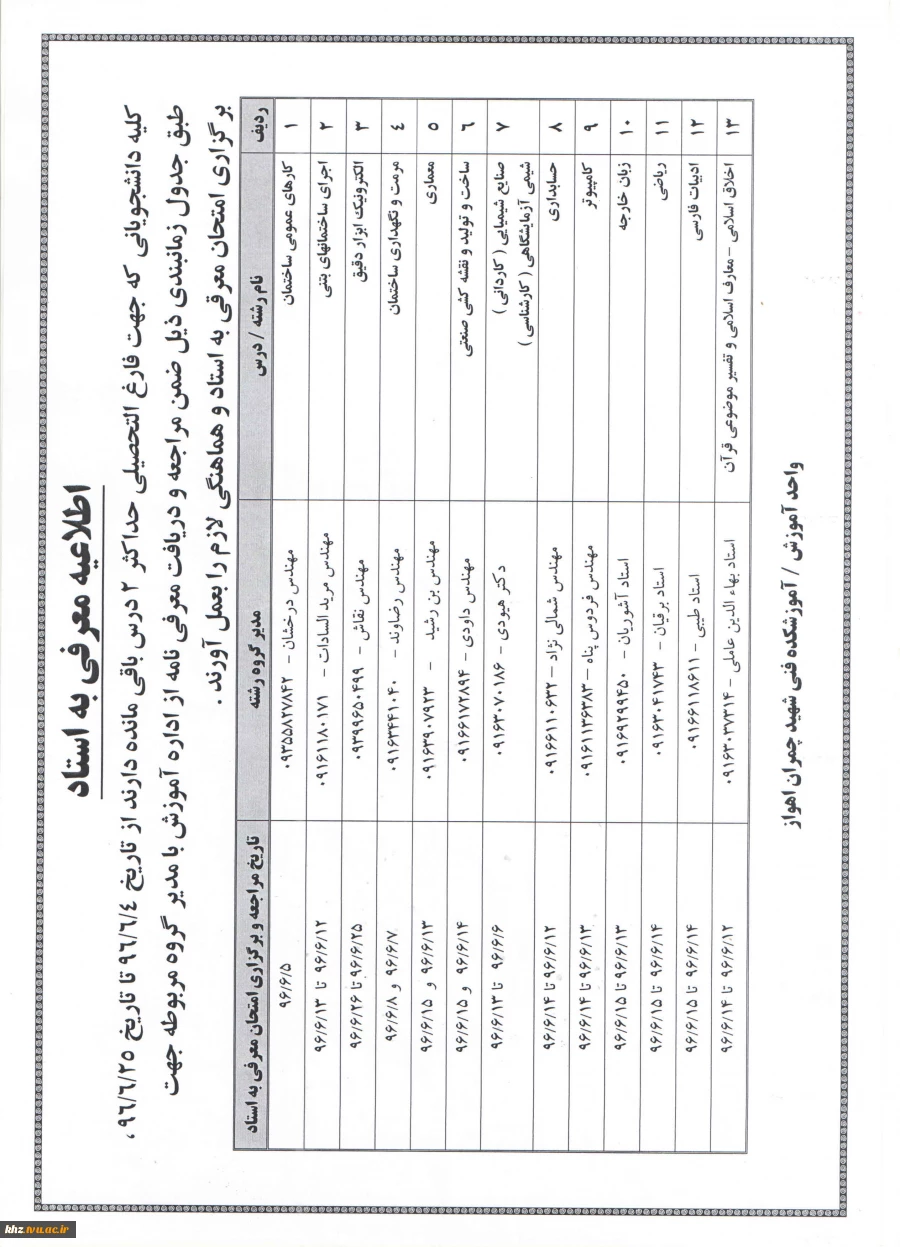 اطلاعیه معرفی به استاد
کلیه دانشجویانی که جهت فارغ التحصیلی حداکثر ۲ درس باقی مانده دارند از تاریخ ۹۶/۶/۴ تا تاریخ ۹۶/۶/۲۵ ،
طبق جدول زمانبندی ذیل ضمن مراجعه و دریافت معرفی نامه از اداره آموزش با مدیر گروه مربوطه جهت
برگزاری امتحان معرفی به استاد و هماهنگی لازم را بعمل آورند .
ردیف نام رشته / درس مدیر گروه رشته تاریخ مراجعه و برگزاری امتحان معرفی به استاد
۱ کارهای عمومی ساختمان مهندس درخشان – ۰۹۳۵۵۸۲۷۸۴۲ ۹۶/۶/۵
۲ اجرای ساختمانهای بتنی مهندس مرید السادات – ۰۹۱۶۱۱۸۰۱۷۱ ۹۶/۶/۱۲ تا ۹۶/۶/۱۳
۳ الکترونیک ابزار دقیق مهندس نقاش – ۰۹۳۹۹۶۵۰۴۹۹ ۹۶/۶/۲۵ تا ۹۶/۶/۲۶
۴ مرمت و نگهداری ساختمان مهندس رضاوند – ۰۹۱۶۳۴۴۱۰۴۰ ۹۶/۶/۷ و ۹۶/۶/۸
۵ معماری مهندس بن رشید – ۰۹۱۶۳۹۰۷۹۲۳ ۹۶/۶/۱۳ و ۹۶/۶/۱۵
۶ ساخت و تولید و نقشه کشی صنعتی مهندس داودی – ۰۹۱۶۶۱۷۲۸۹۴ ۹۶/۶/۱۴ و ۹۶/۶/۱۵
۷ صنایع شیمیایی ( کاردانی ) دکتر هیودی – ۰۹۱۶۳۰۷۰۱۸۶ ۹۶/۶/۶ تا ۹۶/۶/۱۳
شیمی آزمایشگاهی ( کارشناسی )
۸ حسابداری مهندس شمالی نژاد – ۰۹۱۶۶۱۱۰۶۳۲ ۹۶/۶/۱۲ تا ۹۶/۶/۱۴
۹ کامپیوتر مهندس فردوس پناه – ۰۹۱۶۱۱۳۶۳۸۳ ۹۶/۶/۱۳ تا ۹۶/۶/۱۴
۱۰ زبان خارجه استاد آشوریان – ۰۹۱۶۹۲۹۹۴۵۰ ۹۶/۶/۱۳ تا ۹۶/۶/۱۵
۱۱ ریاضی استاد برقیان – ۰۹۱۶۳۰۴۱۷۴۳ ۹۶/۶/۱۴ تا ۹۶/۶/۱۵
۱۲ ادبیات فارسی استاد طیبی – ۰۹۱۶۶۱۱۸۶۱۱ ۹۶/۶/۱۴ تا ۹۶/۶/۱۵
۱۳ اخلاق اسلامی – معارف اسلامی و تفسیر موضوعی قرآن استاد بهاء الدین عاملی – ۰۹۱۶۳۰۳۷۳۱۴ ۹۶/۶/۱۲ تا ۹۶/۶/۱۴
واحد آموزش / آموزشکده فنی شهید چمران اهواز
khz.tvu.ac.ir